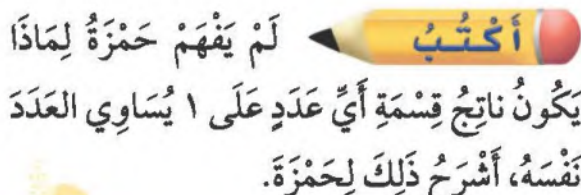 أَكْتُبُ لَمْ يَفْهَمْ حَمْزَةُ لِمَاذَا
يَكُونُ ناتِجُ قِسْمَةِ أَيِّ عَدَدٍ عَلَى ١ يُسَاوِي العَدَدَ
نَفْسَهُ، أَشْرَحُ ذَلِكَ لِحَمْزَةَ.